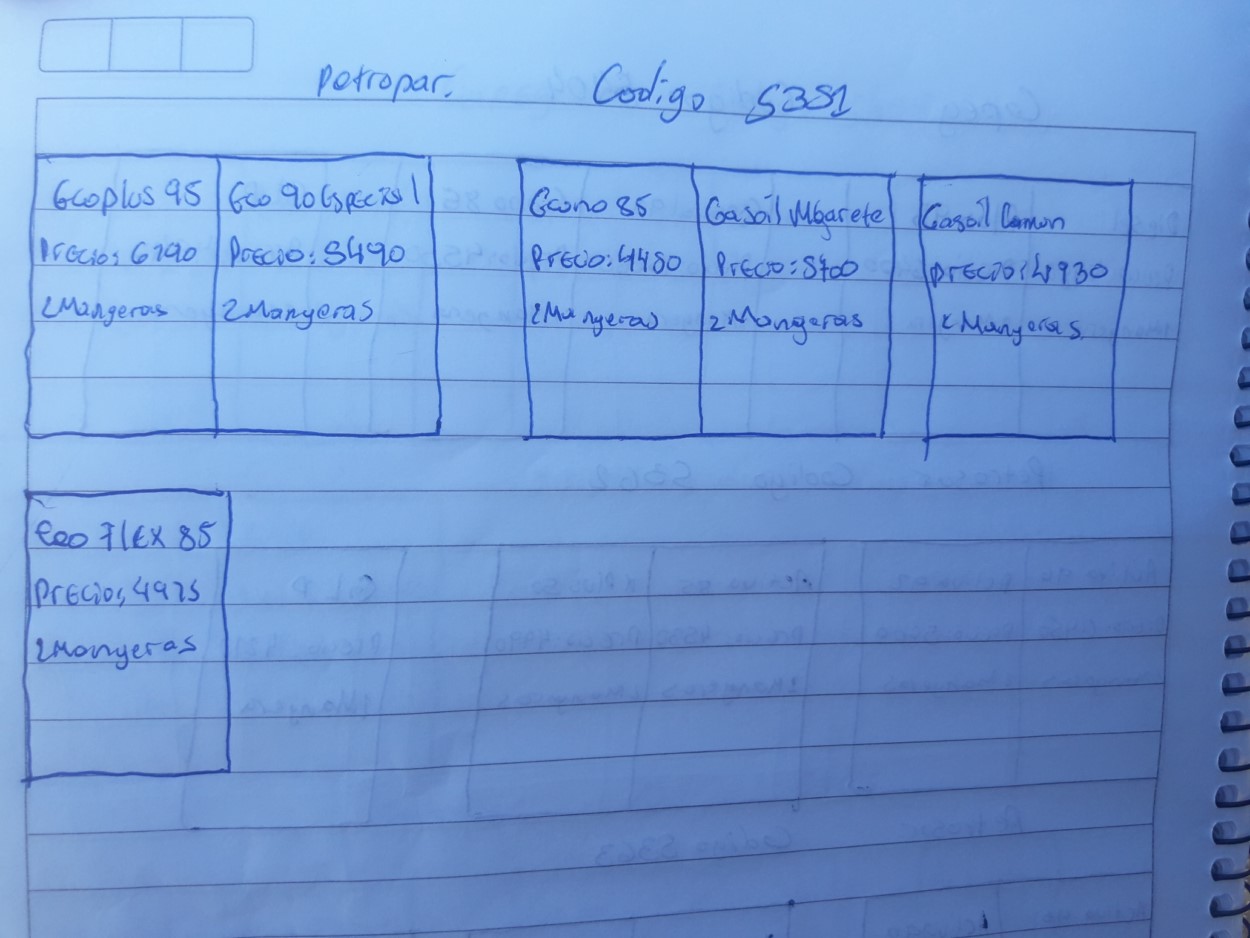 Petropar. Codigo 5351
Ecoplus 95
Precio: 6190
2 Mangeras
Eco 90 Especial
Precio: 5490
2 Mangeras
Econo 85
Precio: 4480
2 Mangeras
Gasoil Mbarete
Precio: 5700
2 Mangeras
Gasoil Comun
Precio: 4930
2 Mangeras
Eco Flex 85
Precio, 4975
2 Mangeras